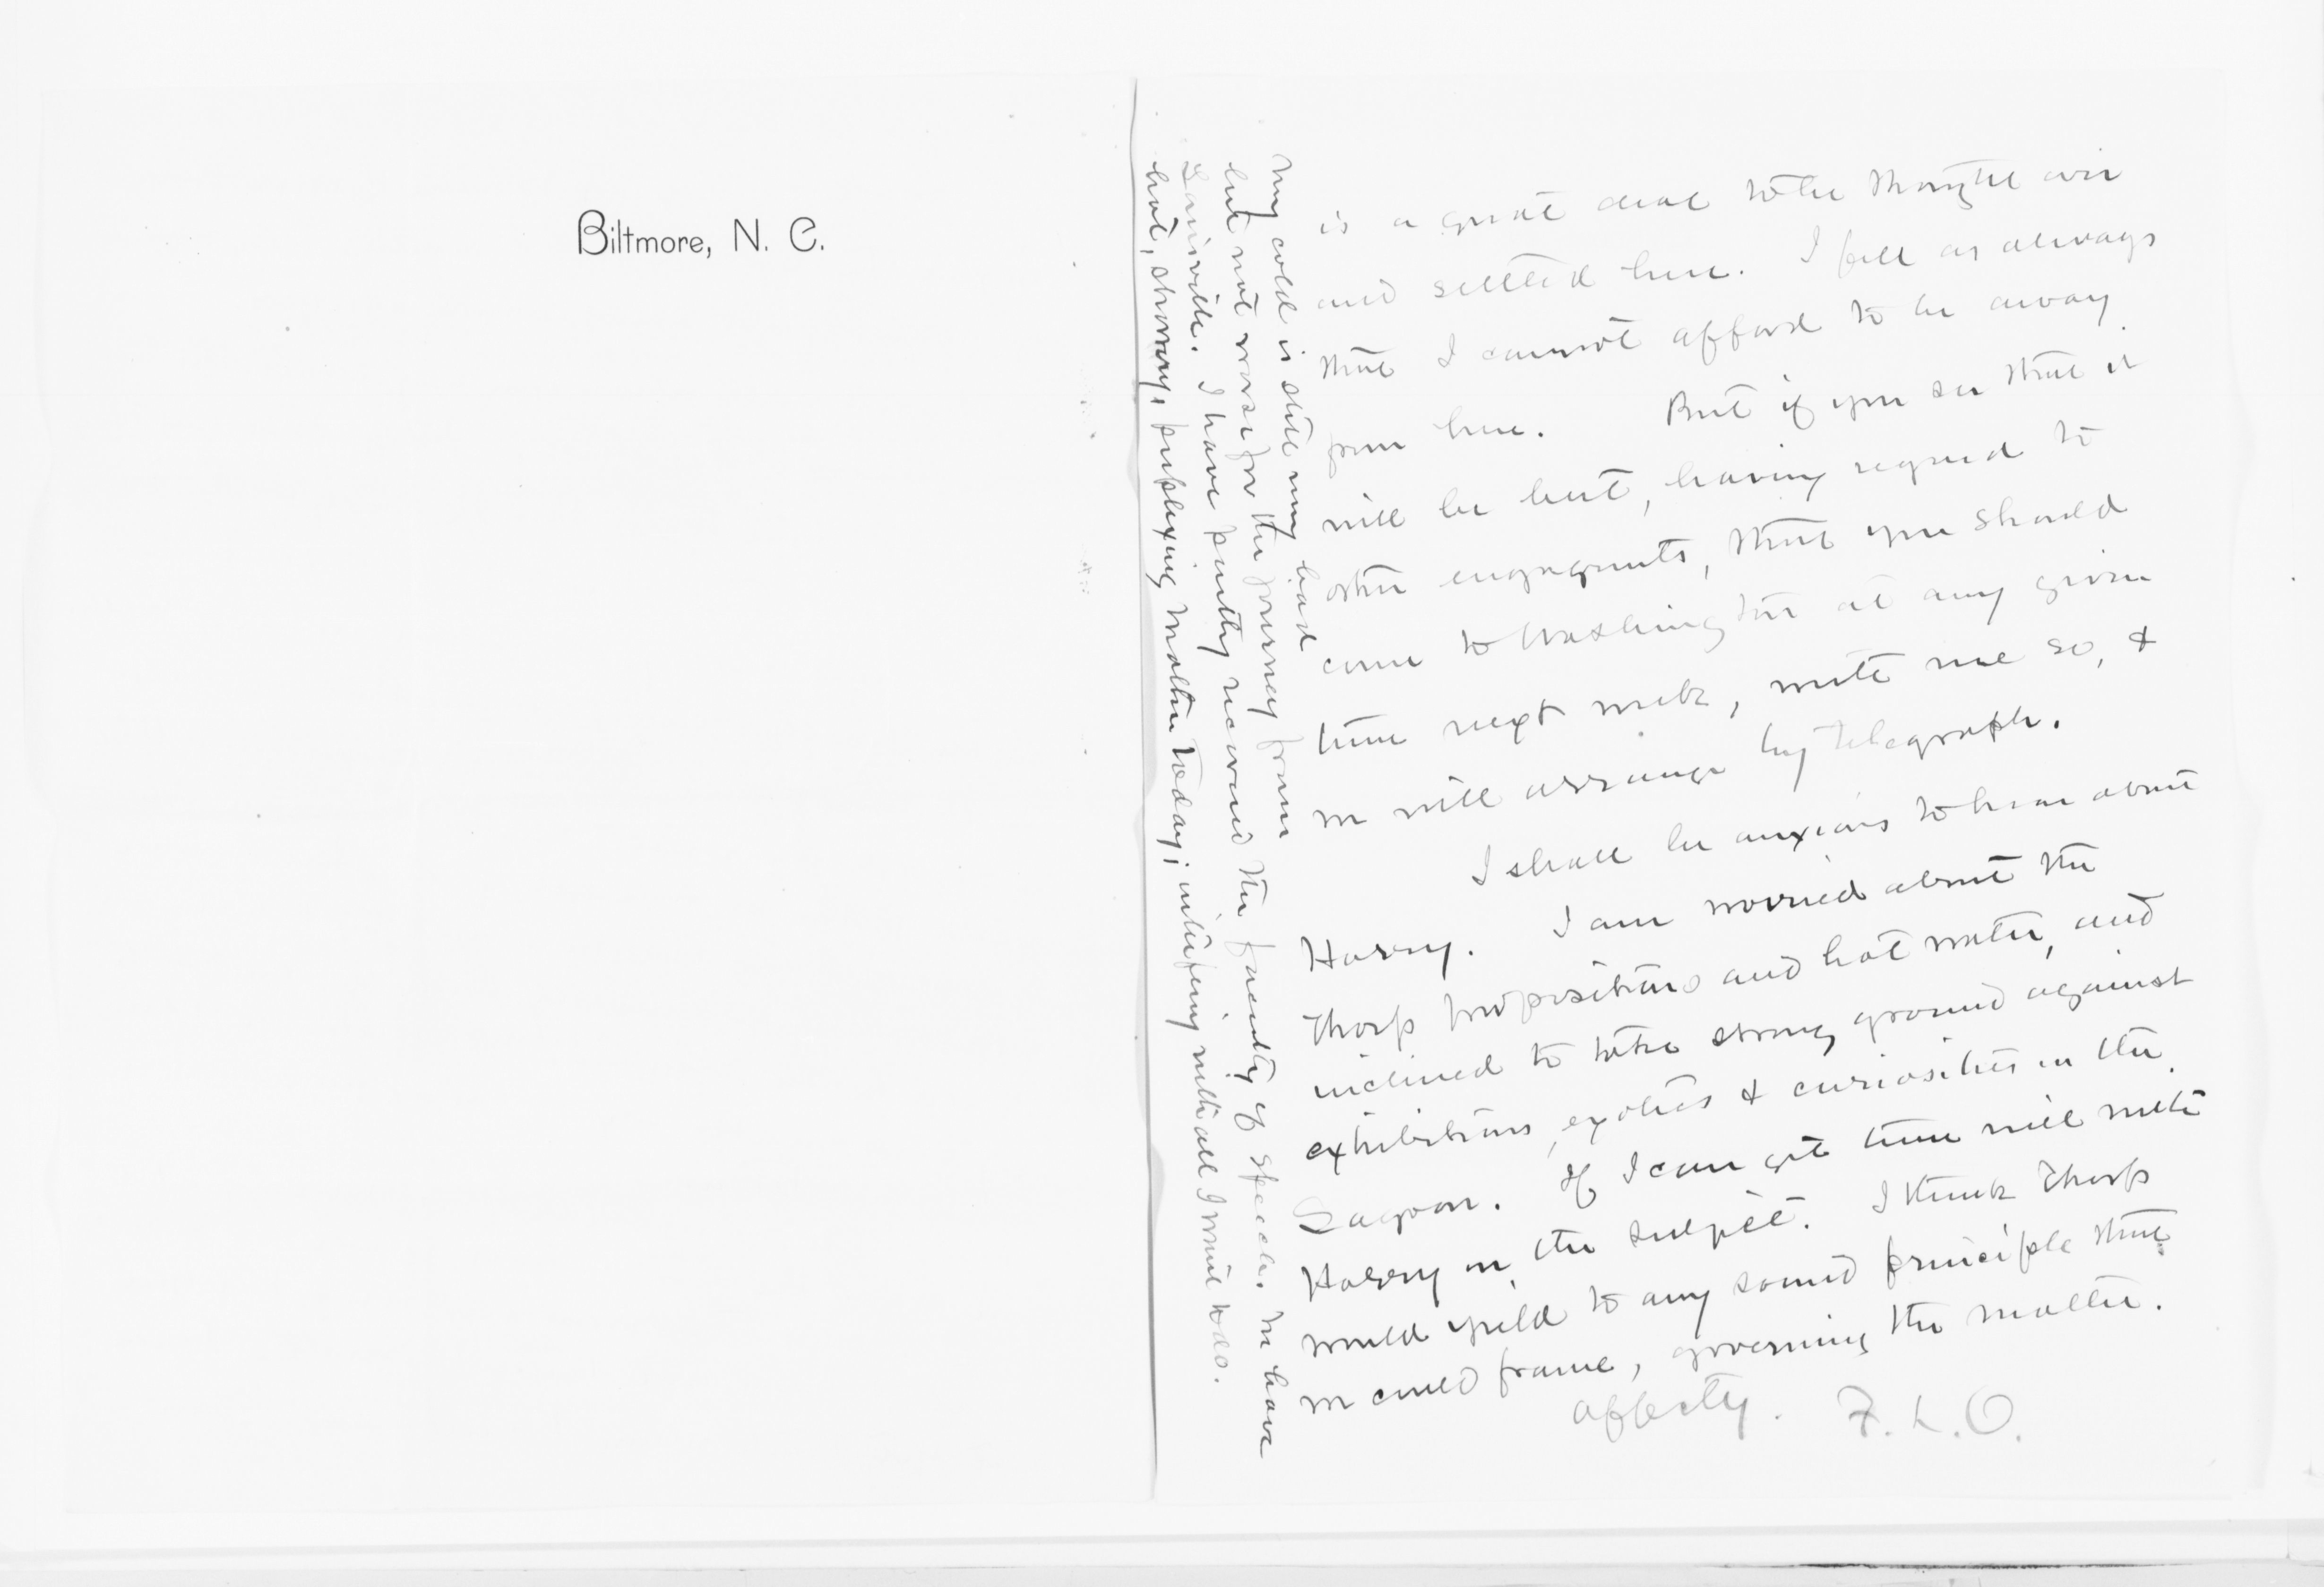 Biltmore, N. C.
is a great deal to be thought over
and settled here. I feel as always
that I cannot afford to be away
from here. But if you see that it
will be best, having regard to
other engagements, that you should
come to Washington at any given
time next week, write me so, &
we will arrange by telegraph.
I shall be anxious to hear about
Harry. I am worried about the
Thorp propositions and hot water, and
inclined to take strong ground against
exhibitions, exotics & curiosities in the
Lagoon. If I can get time will write
Harry on the subject. I think Thorp
would yield to any sound principle that
we could frame, governing the matter.
Affectly. F. L. O.
My cold is still very bad
but not worse for the journey from
Louisville. I have partly recovered the faculty of speech. We have
hot, showery, perplexing weather today; interfering with all I want to do.